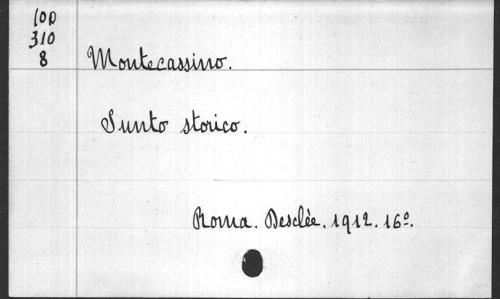 100
310
8
Montecassino.
Sunto storico.
Roma. Desclèe. 1912. 16º.